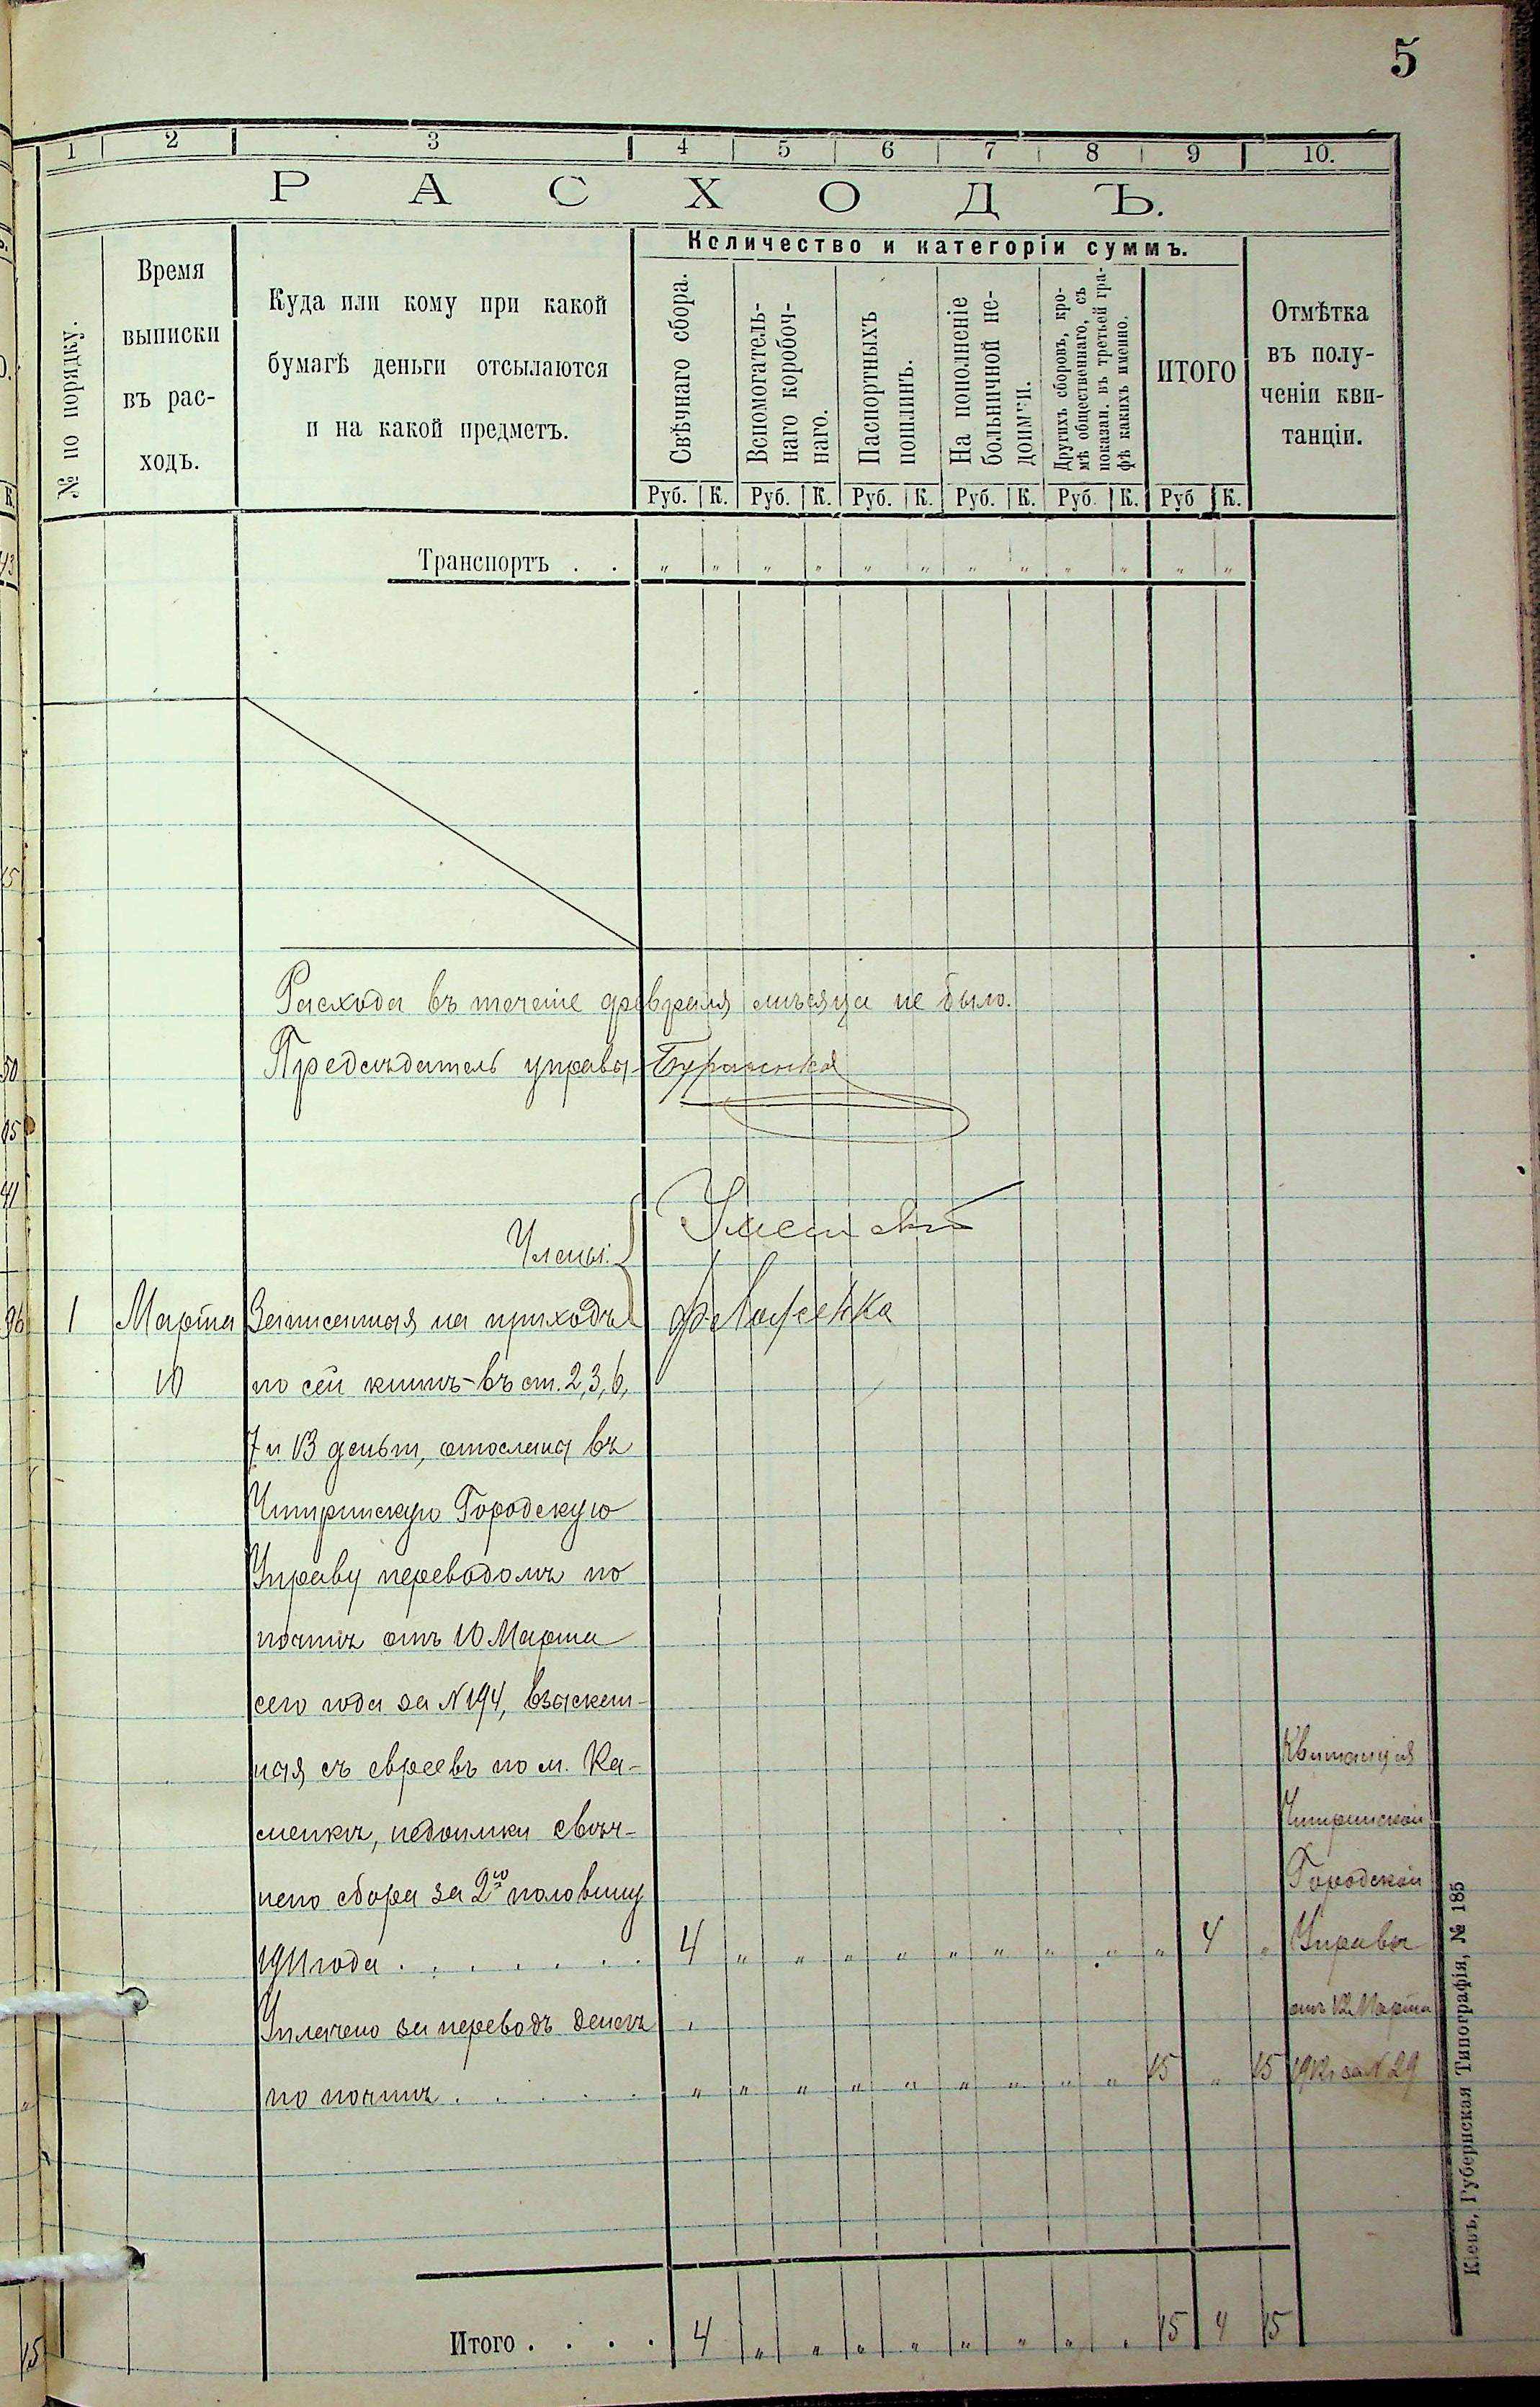 5
1 2 3 4 5 6 7 8 9 10.
РАСХОДЪ.
№ по порядку.
Время
выписки
въ рас-
ходъ.
Куда или кому при какой
бумагѣ деньги отсылаются
и на какой предметъ.
Количество и категоріи суммъ.
Свѣчнаго сбора.
Вспомогатель-
наго коробоч-
наго.
Паспортныхъ
пошлинъ.
На пополненіе
больничной не-
доимки.
Другихъ сборовъ, кро-
мѣ общественнаго, съ
показан. въ третьей гра-
фѣ какихъ именно.
ИТОГО
Отмѣтка
въ полу-
ченіи кви-
танціи.
Руб. К. Руб. К. Руб. К. Руб. К. Руб. К. Руб К.
Транспортъ . . „ „ „ „ „ „ „ „ „ „ „ „
Расхода въ теченіе февраля мѣсяца не было.
Предсѣдатель управы
Члены:
1 Марта Записанныя на приходъ
10 по сей книгѣ въ ст. 2, 3, 6,
7 и 13 деньги, отосланы въ
Чигиринскую Городскую
Управу переводомъ по
почтѣ отъ 10 Марта
сего года за № 194, взыскан-
ныя съ евреевъ по м. Ка-
менкѣ, недоимки свѣч-
наго сбора за 2ю половину
1911 года . . . . . . . 4 „ „ „ „ „ „ „ „ „ 4 „
Уплачено за переводъ денегъ
по почтѣ . . . . . „ „ „ „ „ „ „ „ „ 15 „ 15
Квитанція
Чигиринской
Городской
Управы
отъ 12 Марта
1912 г за № 29
Итого . . . . 4 „ „ „ „ „ „ „ „ 15 4 15
Кіевъ, Губернская Типографія, № 185